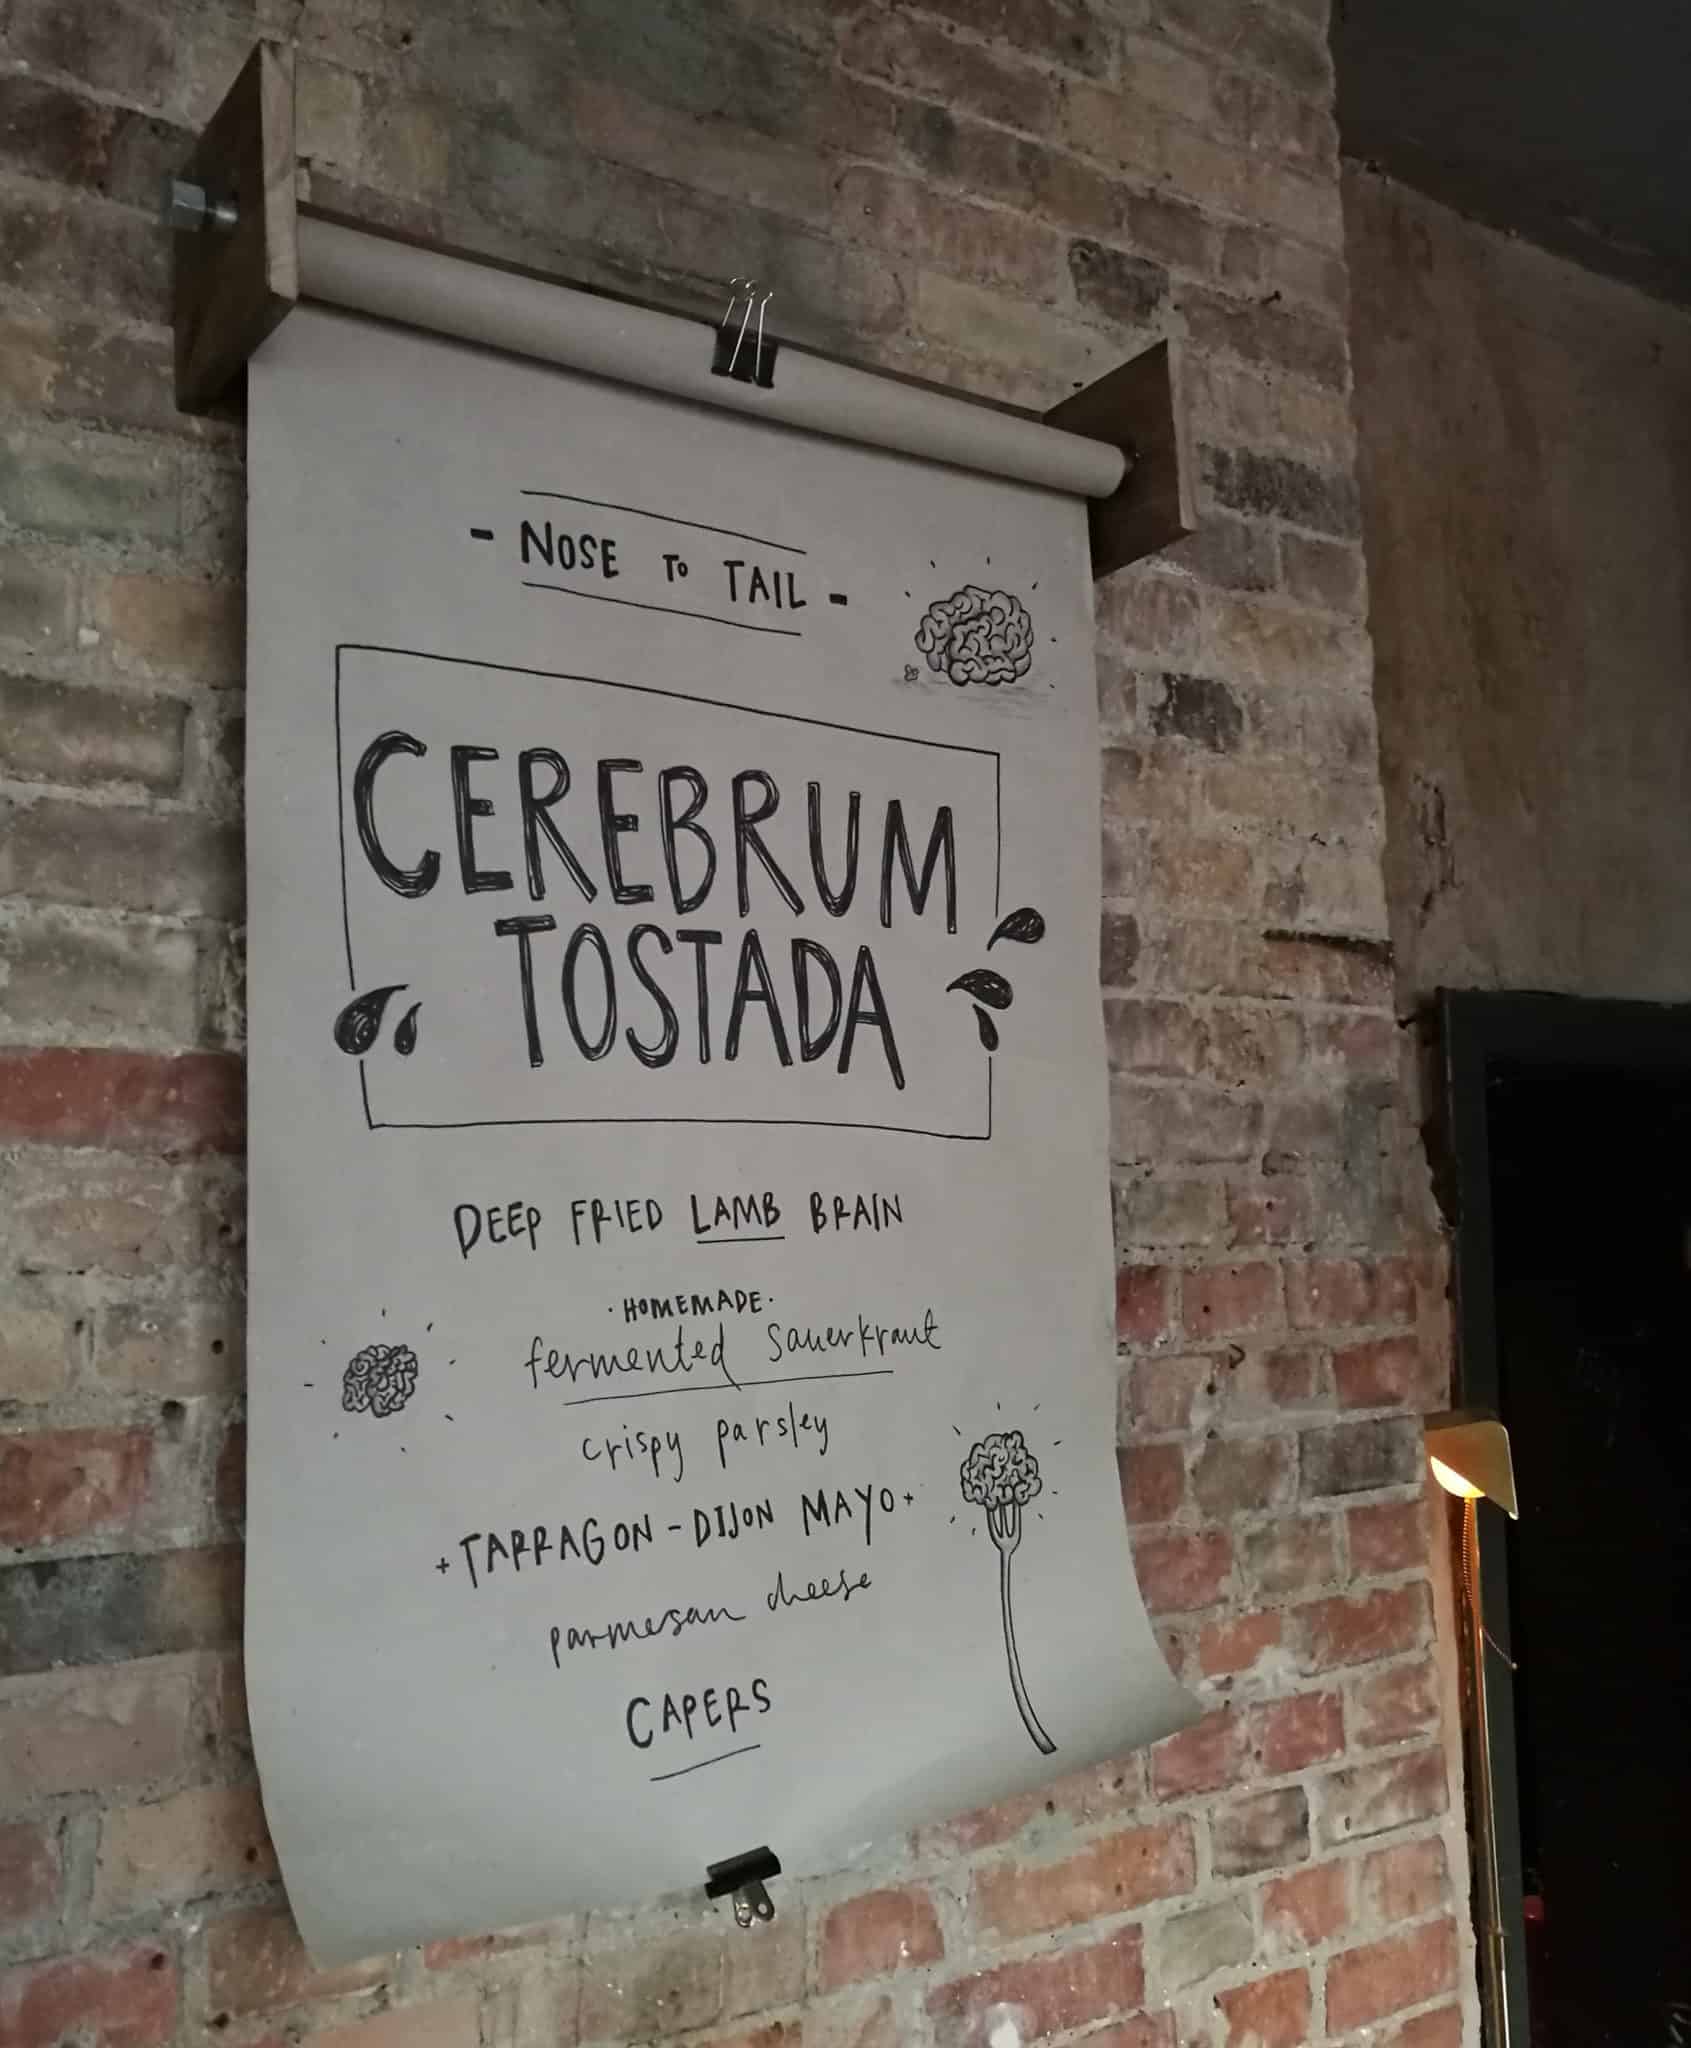 - NOSE TO TAIL -
CEREBRUM
TOSTADA
DEEP FRIED LAMB BRAIN
· HOMEMADE ·
fermented sauerkraut
crispy parsley
+ TARRAGON - DIJON MAYO +
parmesan cheese
CAPERS